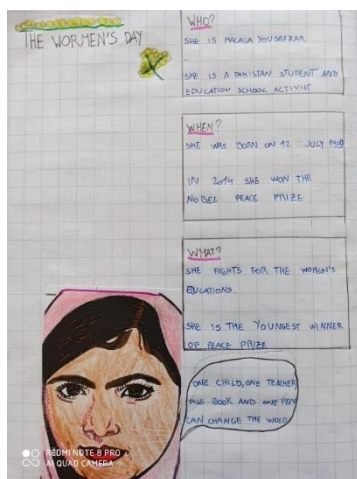 THE WORMEN'S DAY
WHO?
SHE IS MALALA YOUSAFZAR
SHE IS A PAKISTAN STUDENT AND
EDUCATION SCHOOL ACTIVIST
WHEN?
SHE WAS BORN ON 12 JULY 1997
IN 2014 SHE WON THE
NOBEL PEACE PRIZE
WHAT?
SHE FIGHTS FOR THE WOMEN'S
EDUCATIONS.
SHE IS THE YOUNGEST WINNER
OF PEACE PRIZE
ONE CHILD, ONE TEACHER
ONE BOOK AND ONE PEN
CAN CHANGE THE WOLD
REDMI NOTE 8 PRO
AI QUAD CAMERA